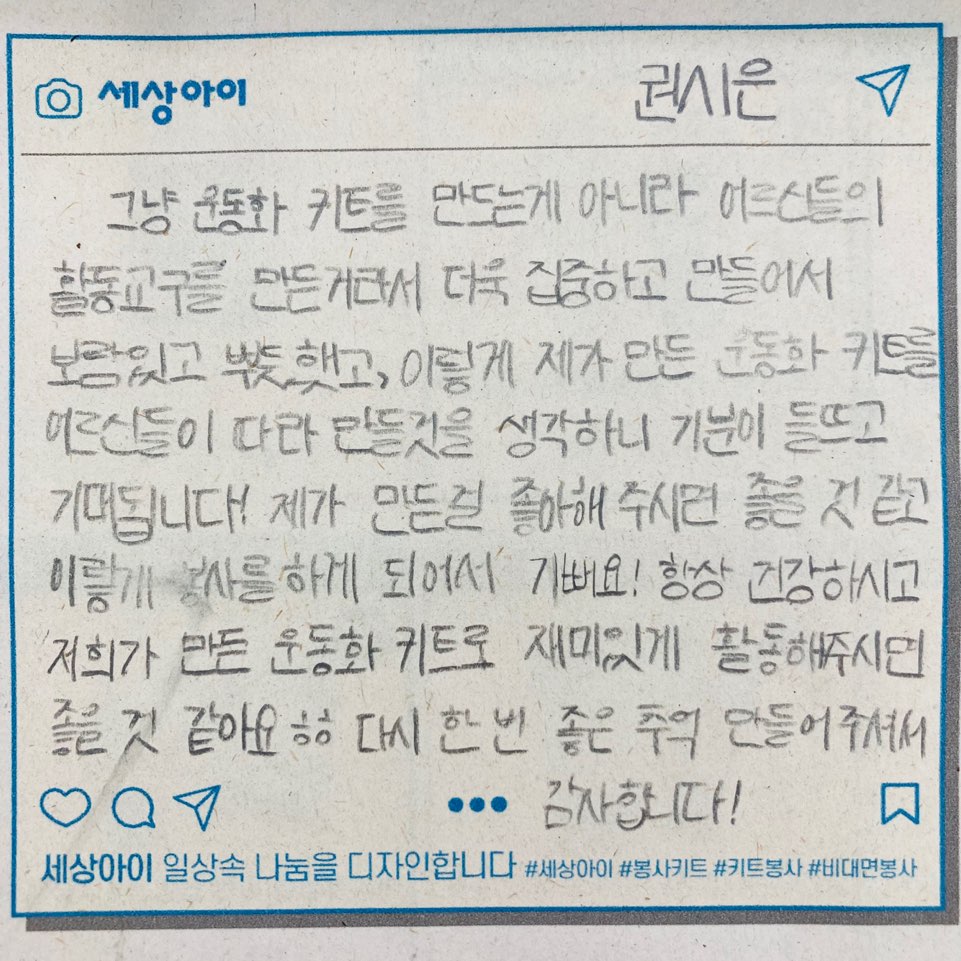 세상아이 권시은
그냥 운동화 키트를 만드는게 아니라 어르신들의
활동교구를 만든거라서 더욱 집중하고 만들어서
보람있고 뿌듯했고, 이렇게 제가 만든 운동화 키트를
어르신들이 다라 만들것을 생각하니 기분이 들뜨고
기대됩니다! 제가 만든걸 좋아해 주시면 좋을 것 같고
이렇게 봉사를 하게 되어서 기뻐요! 항상 건강하시고
저희가 만든 운동화 키트로 재미있게 활동해주시면
좋을 것 같아요 ㅎㅎ 다시 한 번 좋은 추억 만들어주셔서
감사합니다!
세상아이 일상속 나눔을 디자인합니다 #세상아이 #봉사키트 #키트봉사 #비대면봉사